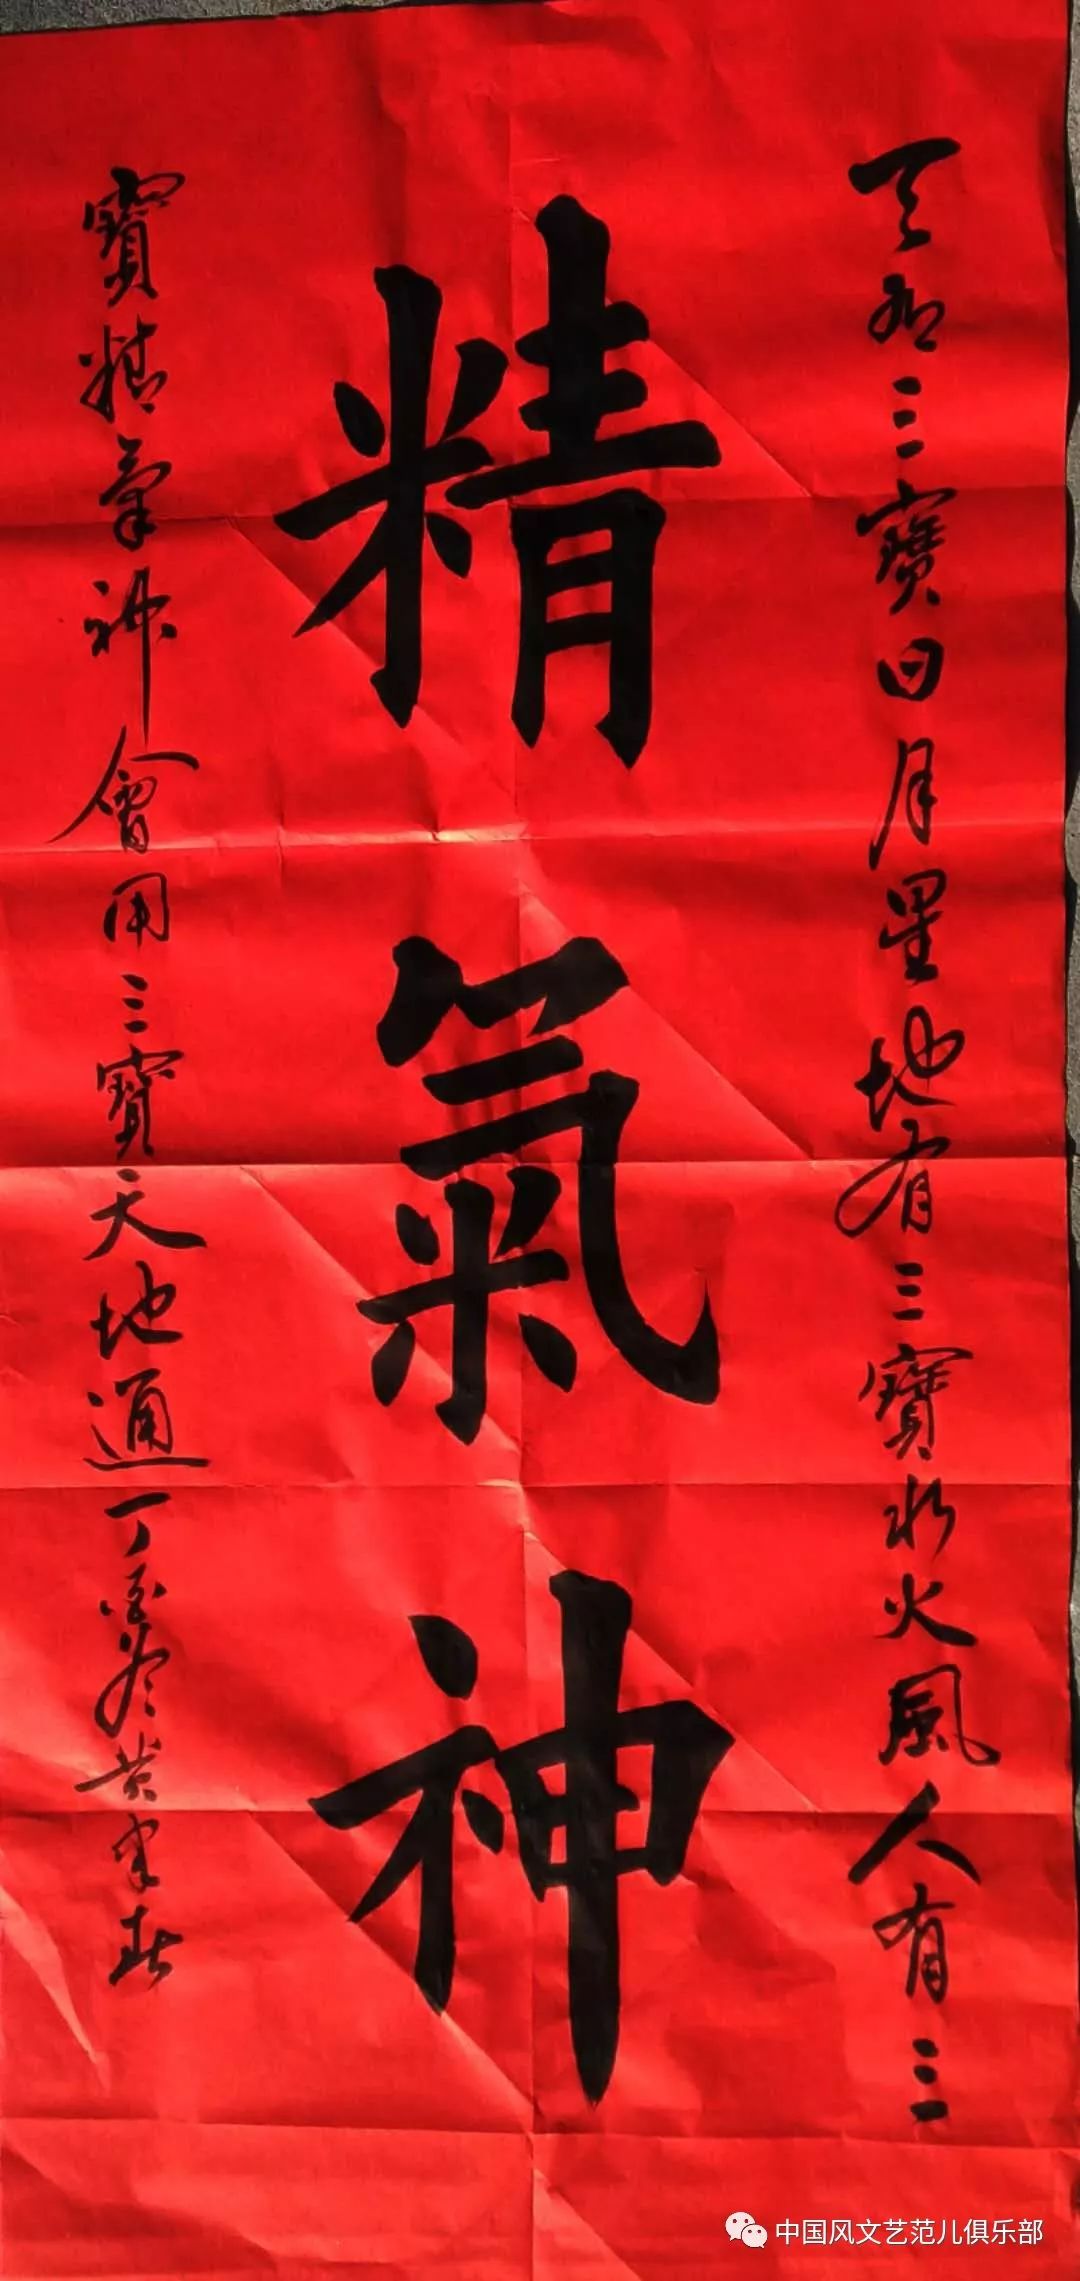 天有三寶日月星地有三寶水火風人有三
精氣神
寶精氣神會用三寶天地通丁酉冬黄
中国风文艺范儿俱乐部